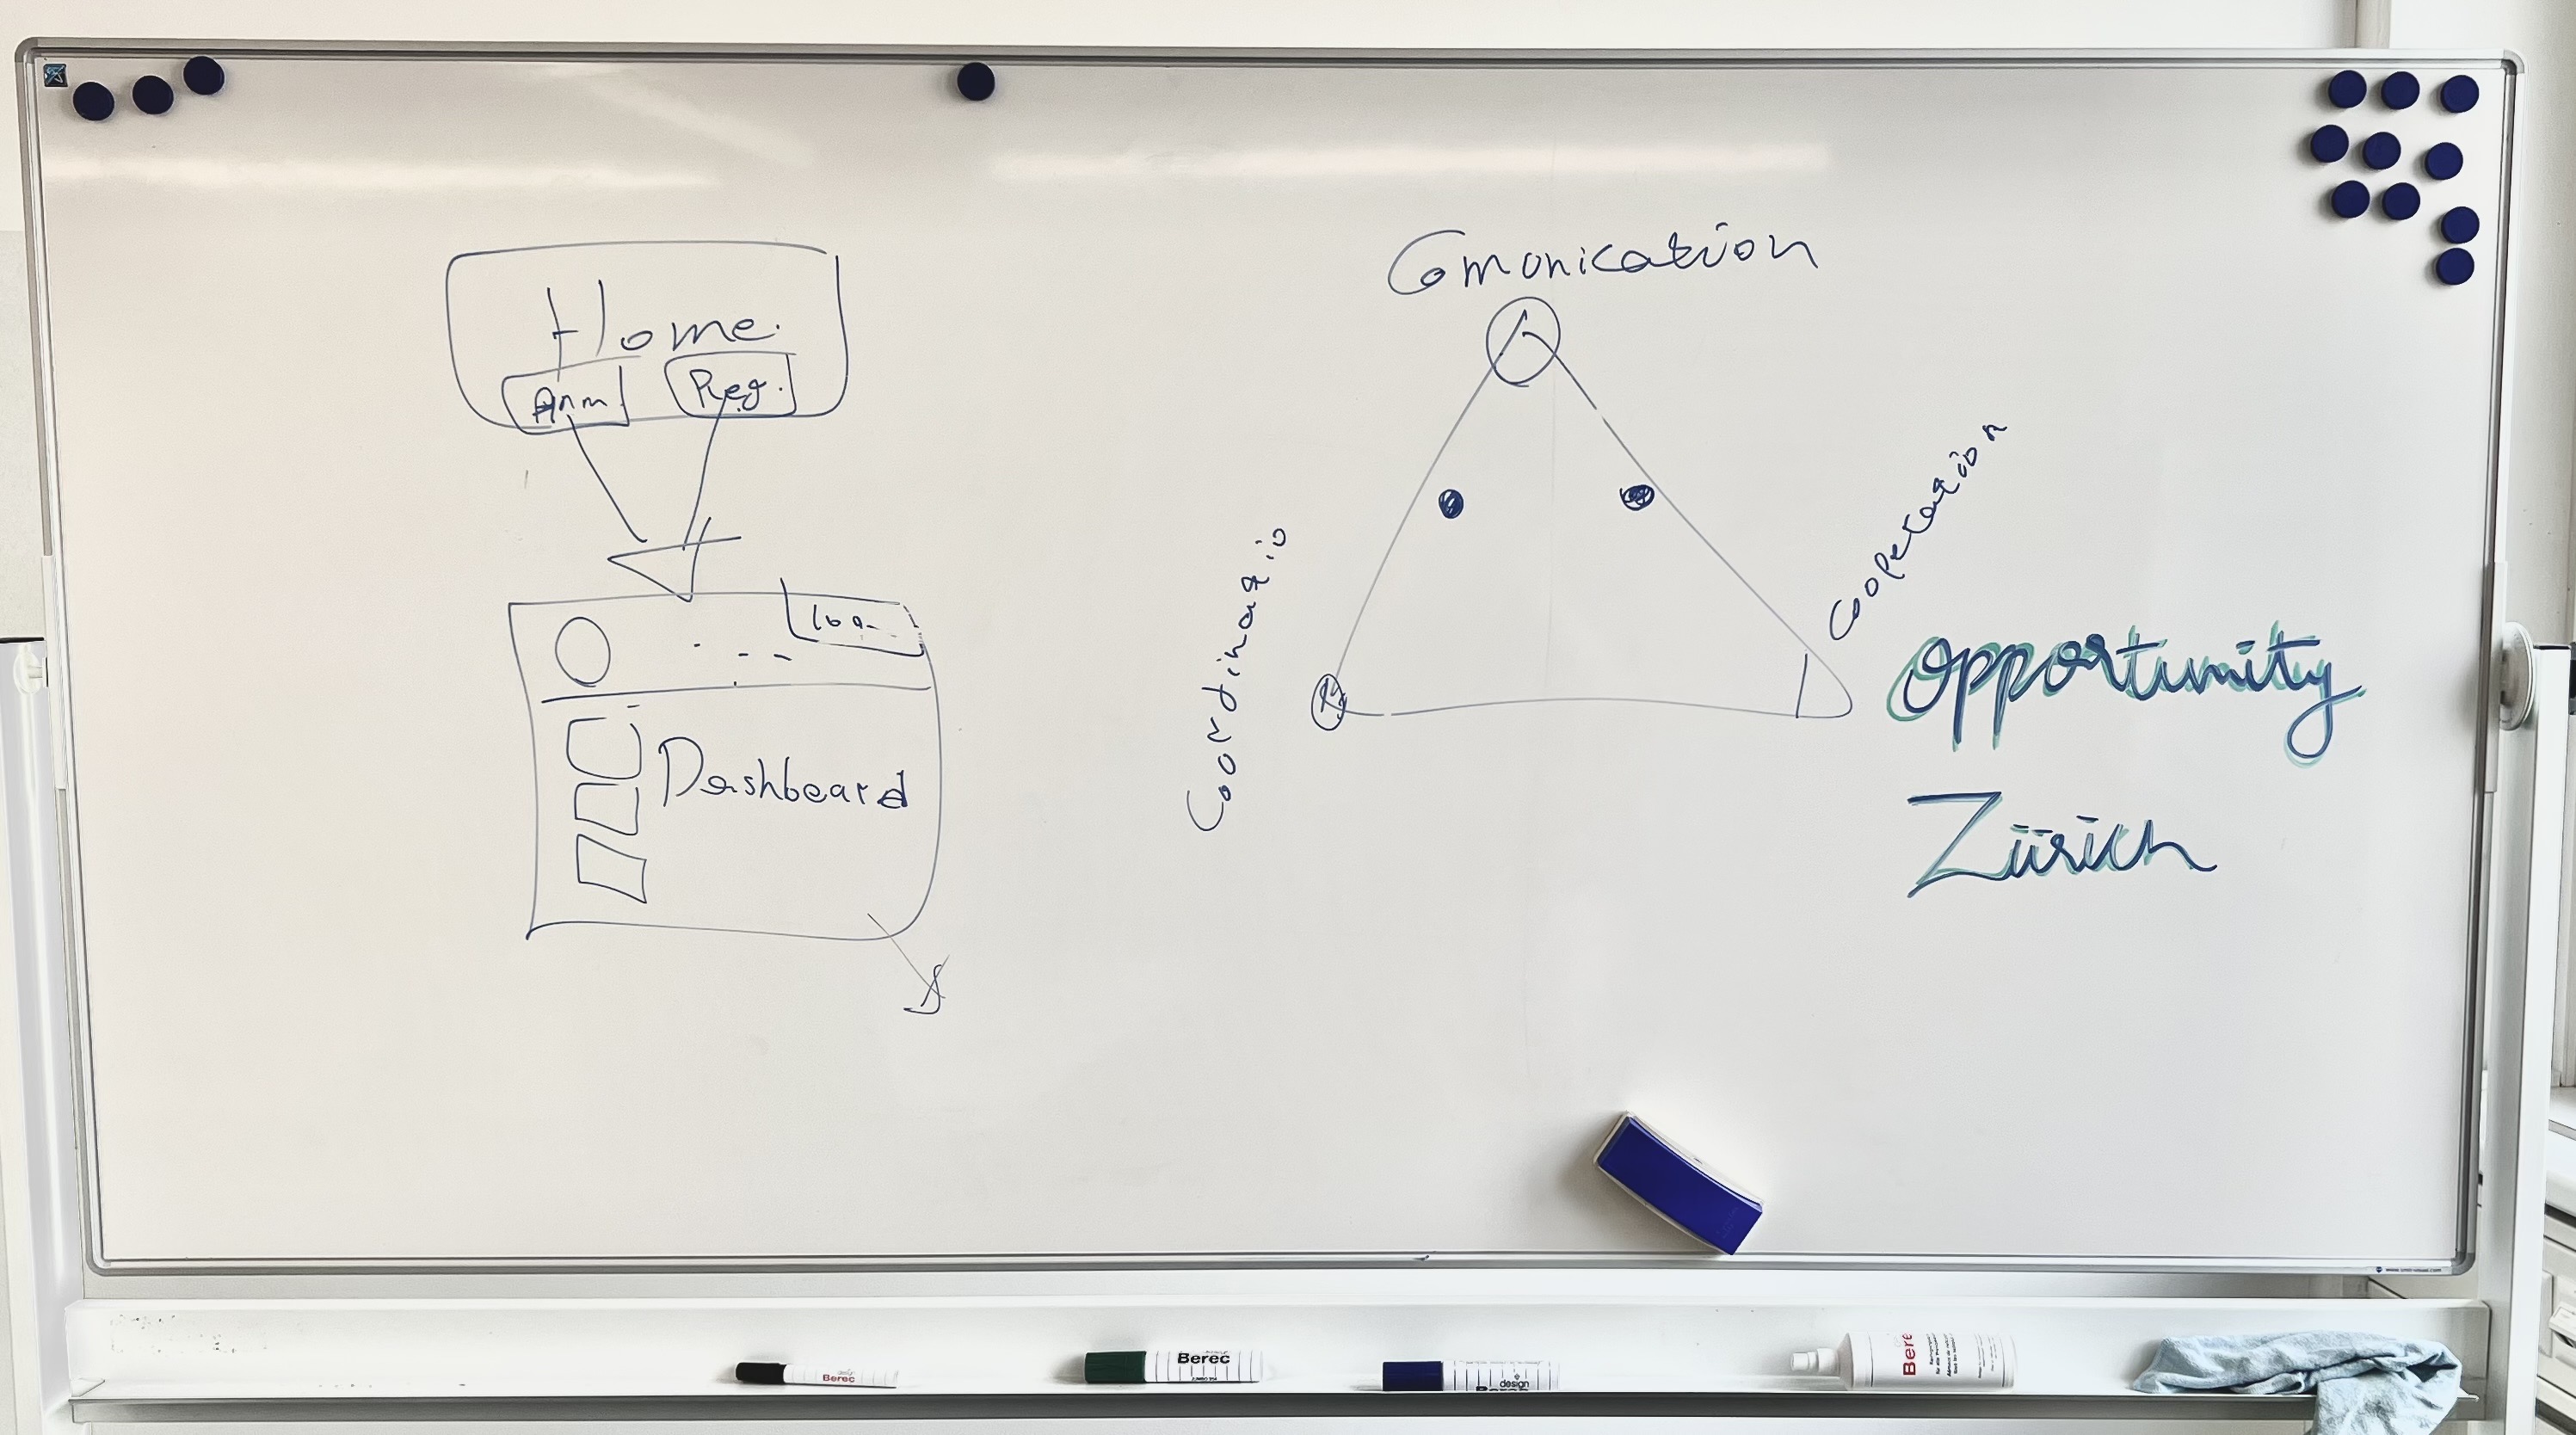 Home.
Anm
Reg.
Dashboard
Comonication
Coordinatio
Cooperation
Opportunity
Zürich
Berec
Berec
design
Bere